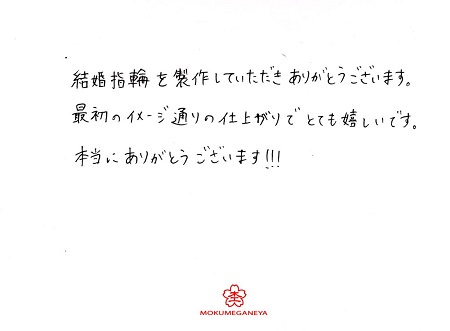 結婚指輪を製作していただきありがとうございます。
最初のイメージ通りの仕上がりでとても嬉しいです。
本当にありがとうございます!!!
MOKUMEGANEYA